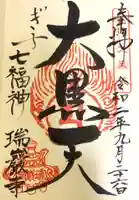 奉拝
令和二年九月二十二日
大黒天
ぎふ
七福神
瑞巌寺